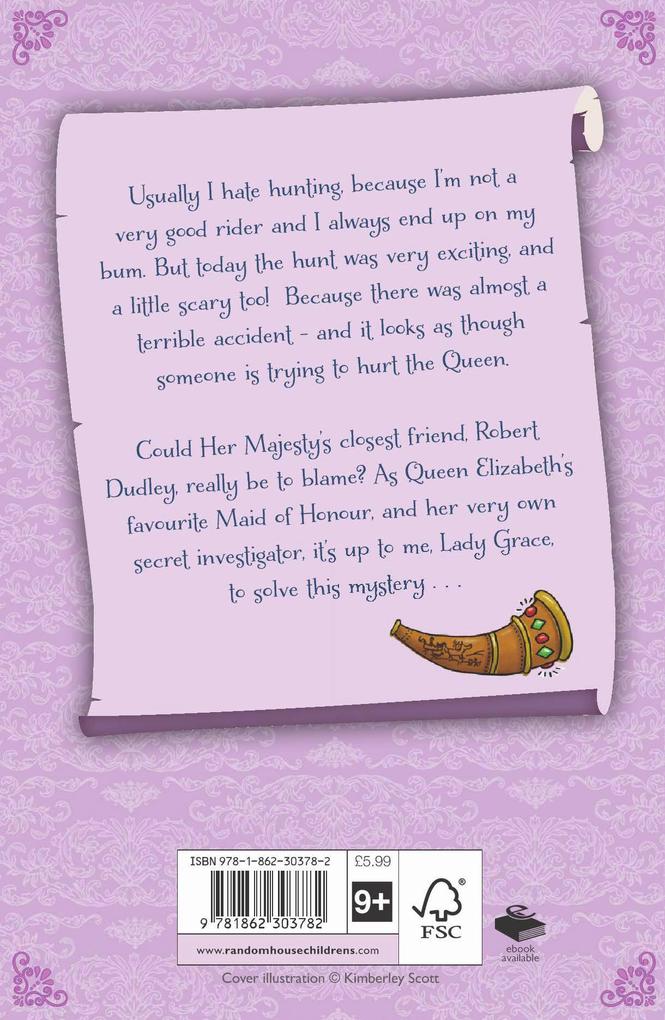 Usually I hate hunting, because I'm not a
very good rider and I always end up on my
bum. But today the hunt was very exciting, and
a little scary too! Because there was almost a
terrible accident – and it looks as though
someone is trying to hurt the Queen.
Could Her Majesty's closest friend, Robert
Dudley, really be to blame? As Queen Elizabeth's
favourite Maid of Honour, and her very own
secret investigator, it's up to me, Lady Grace,
to solve this mystery . . .
ISBN 978-1-862-30378-2
£5.99
9 781862 303782
9+
®
FSC
www.randomhousechildrens.com
e
ebook
available
Cover illustration © Kimberley Scott